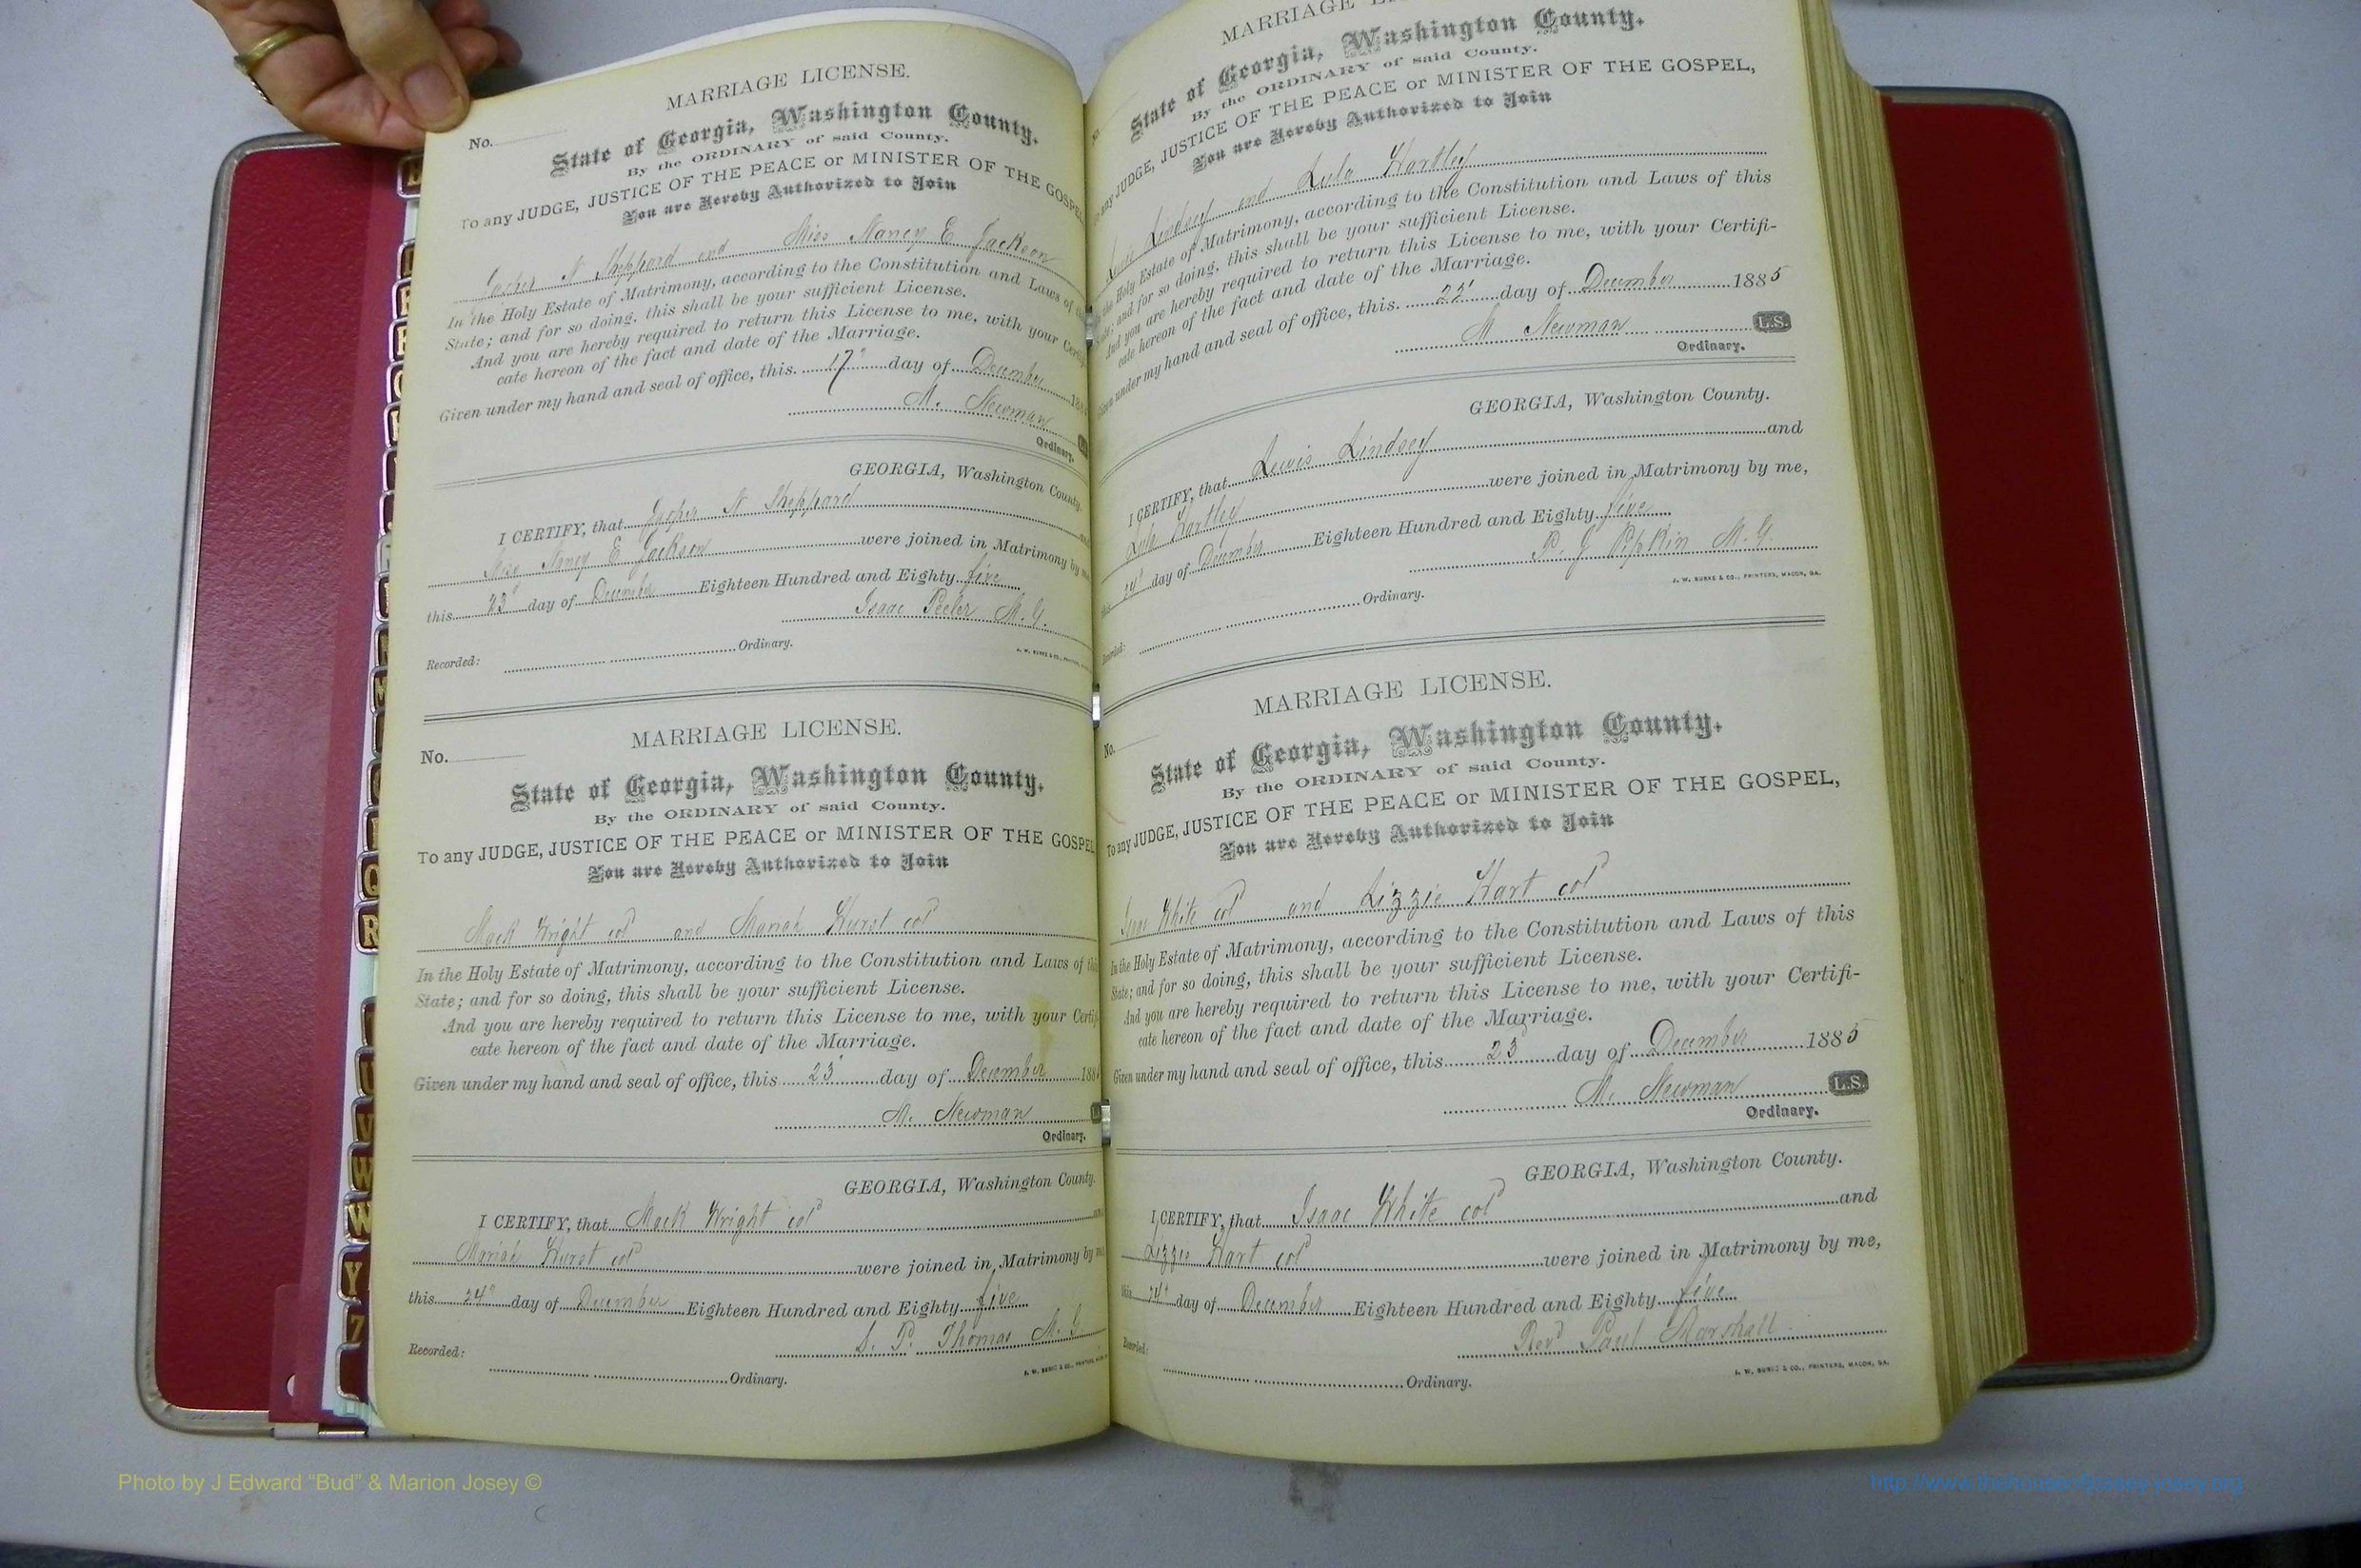 MARRIAGE LICENSE.
No.
State of Georgia, Washington County.
By the ORDINARY of said County.
To any JUDGE, JUSTICE OF THE PEACE or MINISTER OF THE GOSPEL
You are Hereby Authorized to Join
Jasper N Sheppard and Miss Nancy E Jackson
In the Holy Estate of Matrimony, according to the Constitution and Laws of
State; and for so doing, this shall be your sufficient License.
And you are hereby required to return this License to me, with your Certifi
cate hereon of the fact and date of the Marriage.
Given under my hand and seal of office, this 17" day of December 188
M. Newman
Ordinary.
GEORGIA, Washington County.
I CERTIFY, that Jasper N Sheppard and
Miss Nancy E Jackson were joined in Matrimony by me
this 23" day of December Eighteen Hundred and Eighty five
Isaac Peeler M.G.
Recorded: Ordinary.
MARRIAGE LICENSE.
No.
State of Georgia, Washington County.
By the ORDINARY of said County.
To any JUDGE, JUSTICE OF THE PEACE or MINISTER OF THE GOSPEL
You are Hereby Authorized to Join
Mack Wright col and Mariah Hurst col
In the Holy Estate of Matrimony, according to the Constitution and Laws of this
State; and for so doing, this shall be your sufficient License.
And you are hereby required to return this License to me, with your Certifi
cate hereon of the fact and date of the Marriage.
Given under my hand and seal of office, this 23" day of December 188
M. Newman
Ordinary.
GEORGIA, Washington County.
I CERTIFY, that Mack Wright col and
Mariah Hurst col were joined in Matrimony by me
this 24" day of December Eighteen Hundred and Eighty five
S. P. Thomas M.G.
Recorded: Ordinary.
MARRIAGE
No.
State of Georgia, Washington County.
By the ORDINARY of said County.
To any JUDGE, JUSTICE OF THE PEACE or MINISTER OF THE GOSPEL,
You are Hereby Authorized to Join
Lewis Lindsey and Lula Hartley
In the Holy Estate of Matrimony, according to the Constitution and Laws of this
State; and for so doing, this shall be your sufficient License.
And you are hereby required to return this License to me, with your Certifi-
cate hereon of the fact and date of the Marriage.
Given under my hand and seal of office, this 22" day of December 1885
M Newman L.S.
Ordinary.
GEORGIA, Washington County.
I CERTIFY, that Lewis Lindsey and
Lula Hartley were joined in Matrimony by me,
this 24" day of December Eighteen Hundred and Eighty five
P. J Pipkin M.G.
J. W. BURKE & CO., PRINTERS, MACON, GA.
Recorded: Ordinary.
MARRIAGE LICENSE.
No.
State of Georgia, Washington County.
By the ORDINARY of said County.
To any JUDGE, JUSTICE OF THE PEACE or MINISTER OF THE GOSPEL,
You are Hereby Authorized to Join
Isaac White col and Lizzie Hart col
In the Holy Estate of Matrimony, according to the Constitution and Laws of this
State; and for so doing, this shall be your sufficient License.
And you are hereby required to return this License to me, with your Certifi-
cate hereon of the fact and date of the Marriage.
Given under my hand and seal of office, this 23" day of December 1885
M. Newman L.S.
Ordinary.
GEORGIA, Washington County.
I CERTIFY, that Isaac White col and
Lizzie Hart col were joined in Matrimony by me,
this 24" day of December Eighteen Hundred and Eighty five
Revd Paul Marshall
J. W. BURKE & CO., PRINTERS, MACON, GA.
Recorded: Ordinary.
Q
R
U
V
W
Y
Z
Photo by J Edward "Bud" & Marion Josey ©